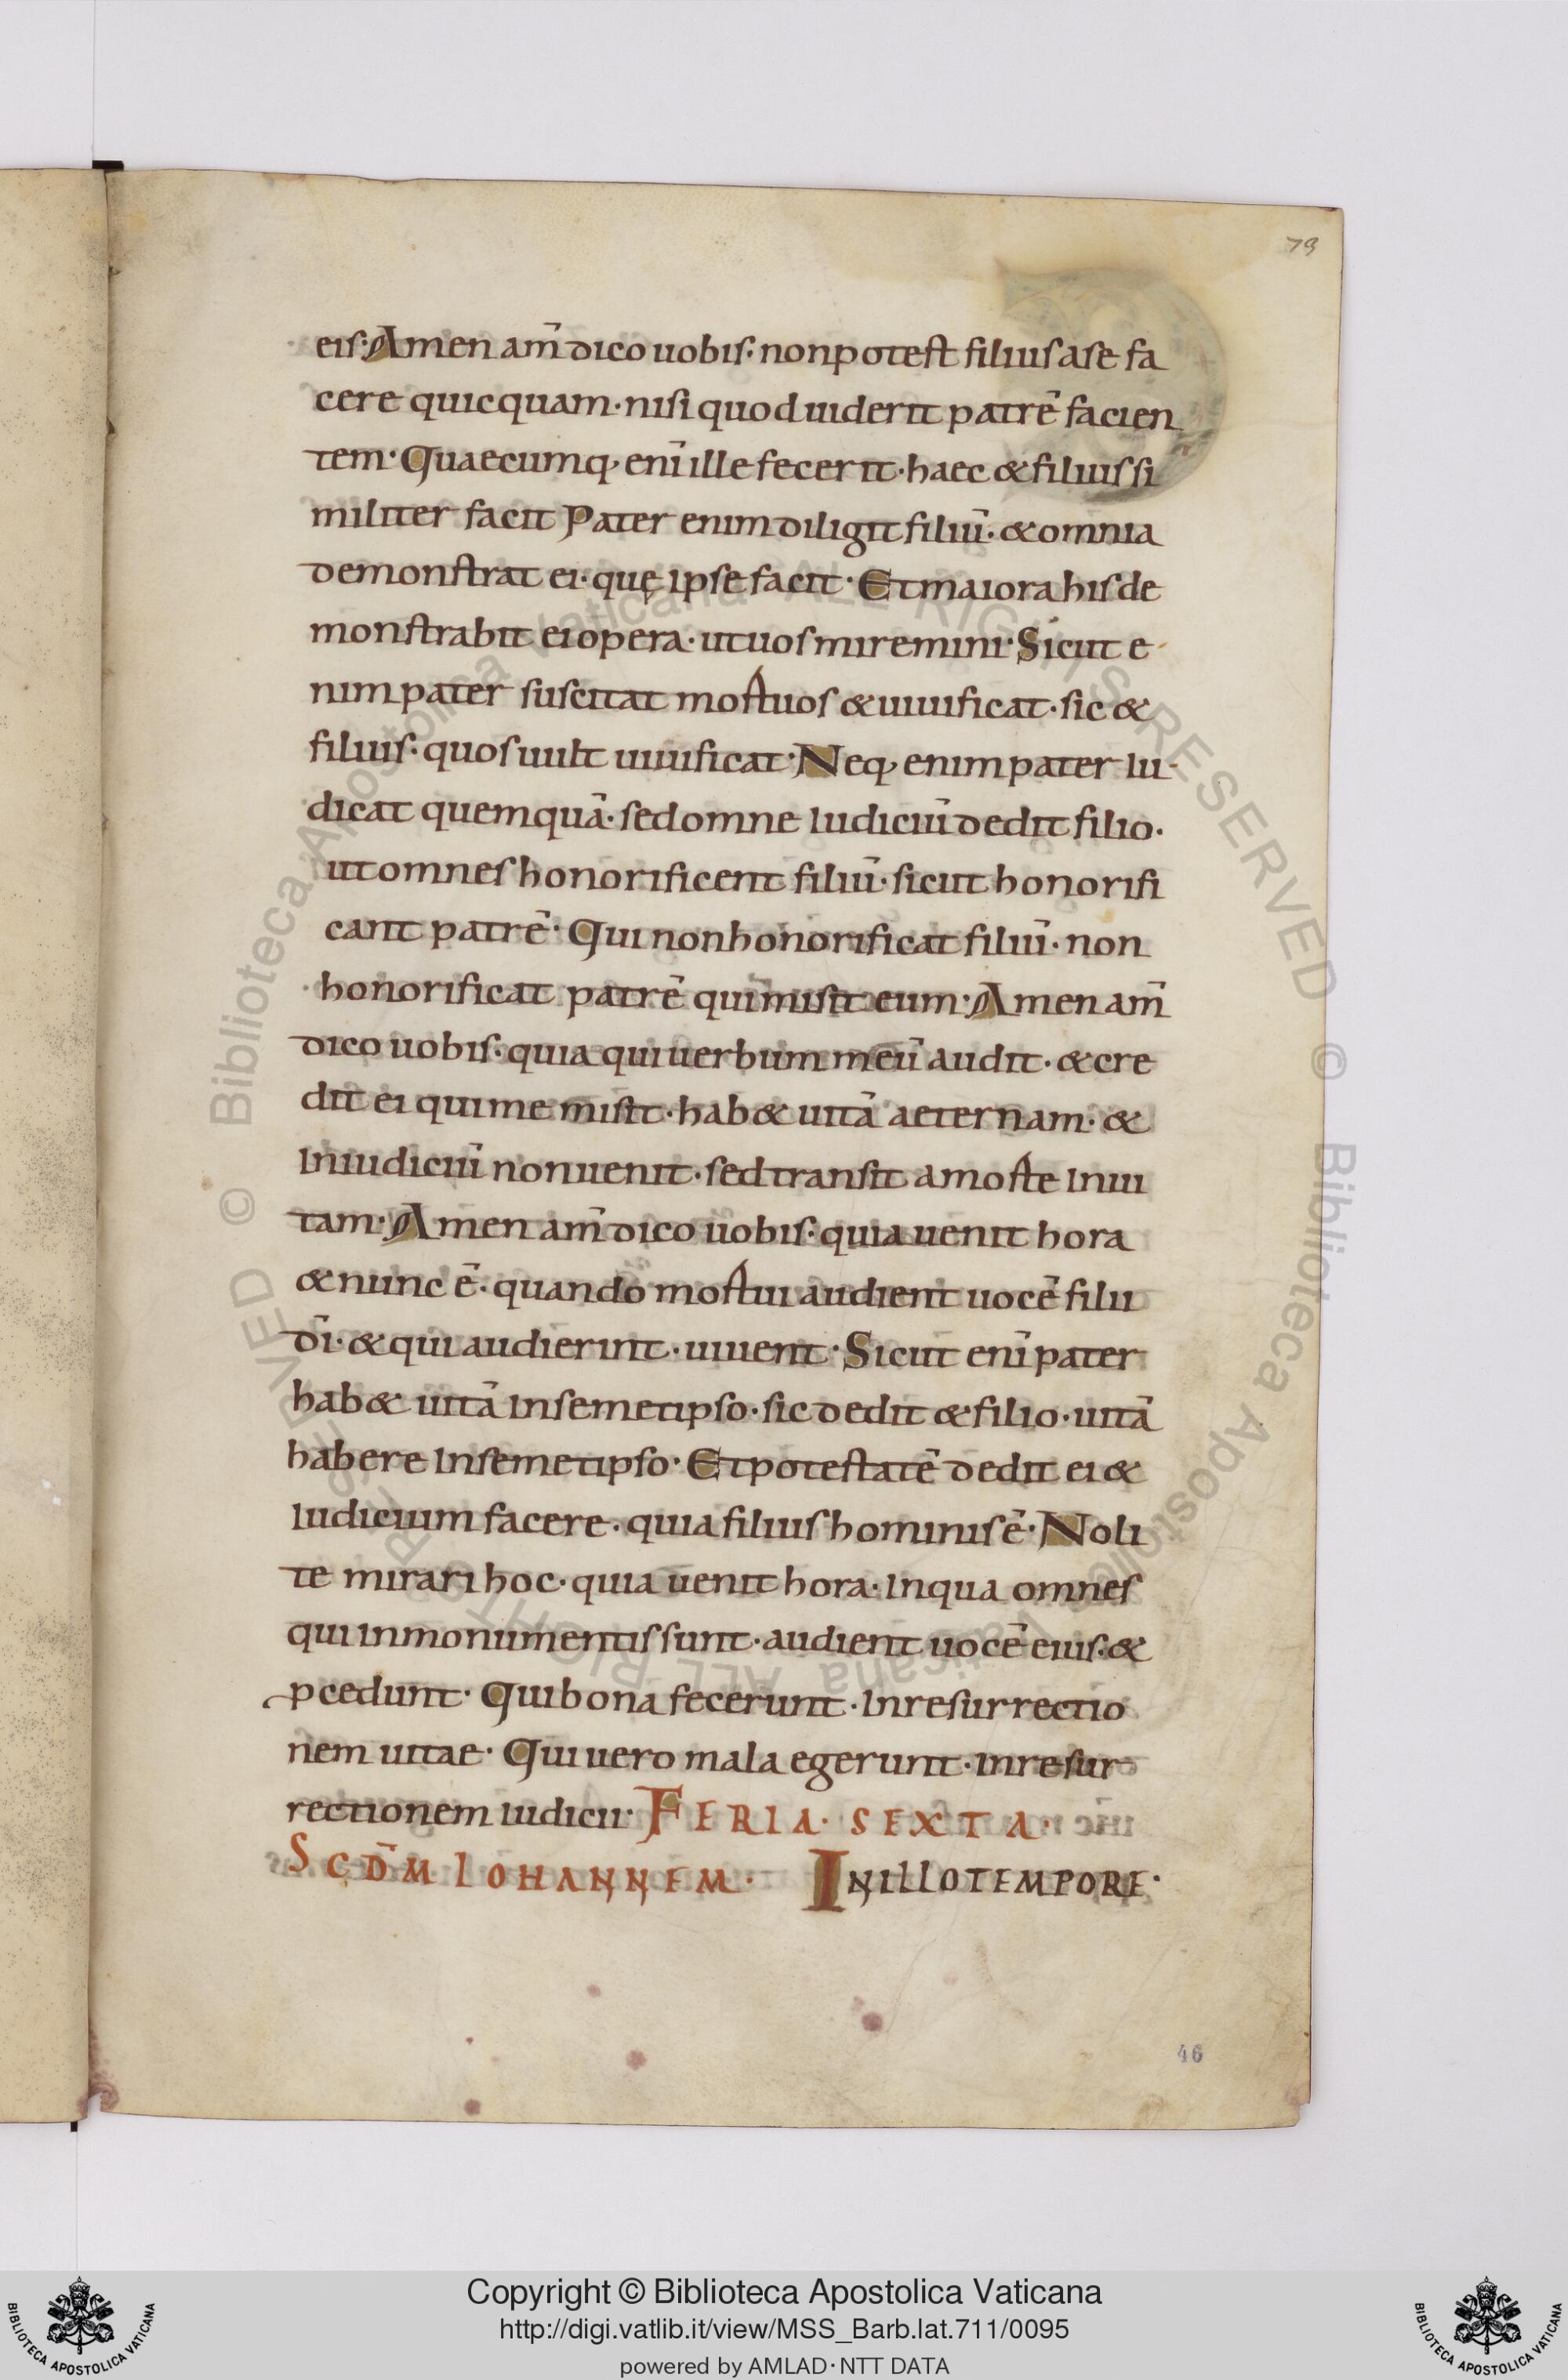 79
eis· Amen am̄ dico uobis· non potest filius a se fa
cere quicquam· nisi quod uiderit patrē facien
tem· Quaecumq, enī ille fecerit· haec & filius si
militer facit Pater enim diligit filiū· & omnia
demonstrat ei· quę ipse facit· Et maiora his de
monstrabit ei opera· ut uos miremini· Sicut e
nim pater suscitat mortuos & uiuificat· sic &
filius· quos uult uiuificat· Neq, enim pater iu
dicat quemquā· sed omne iudiciū dedit filio·
ut omnes honorificent filiū· sicut honorifi
cant patrē· Qui non honorificat filiū· non
honorificat patrē qui misit eum· Amen am̄
dico uobis· quia qui uerbum meū audit· & cre
dit ei qui me misit· hab& uitā aeternam· &
in iudiciū non uenit· sed transit a morte in ui
tam· Amen am̄ dico uobis· quia uenit hora
& nunc ē· quando mortui audient uocē filii
dī· & qui audierint· uiuent· Sicut enī pater
hab& uitā in semetipso· sic dedit & filio· uitā
habere in semetipso· Et potestatē dedit ei &
iudicium facere· quia filius hominis ē· Noli
te mirari hoc· quia uenit hora· in qua omnes
qui in monumentis sunt· audient uocē eius· &
pcedunt· Qui bona fecerunt· in resurrectio
nem uitae· Qui uero mala egerunt· in resur
rectionem iudicii· FERIA· SEXTA·
SCD̄M IOHANNEM· IN ILLO TEMPORE·
46
© Biblioteca Apostolica Vaticana ALL RIGHTS RESERVED © Biblioteca Apostolica Vaticana ALL RIGHTS RESERVED
Copyright © Biblioteca Apostolica Vaticana
http://digi.vatlib.it/view/MSS_Barb.lat.711/0095
powered by AMLAD·NTT DATA
BIBLIOTECA APOSTOLICA VATICANA
BIBLIOTECA APOSTOLICA VATICANA